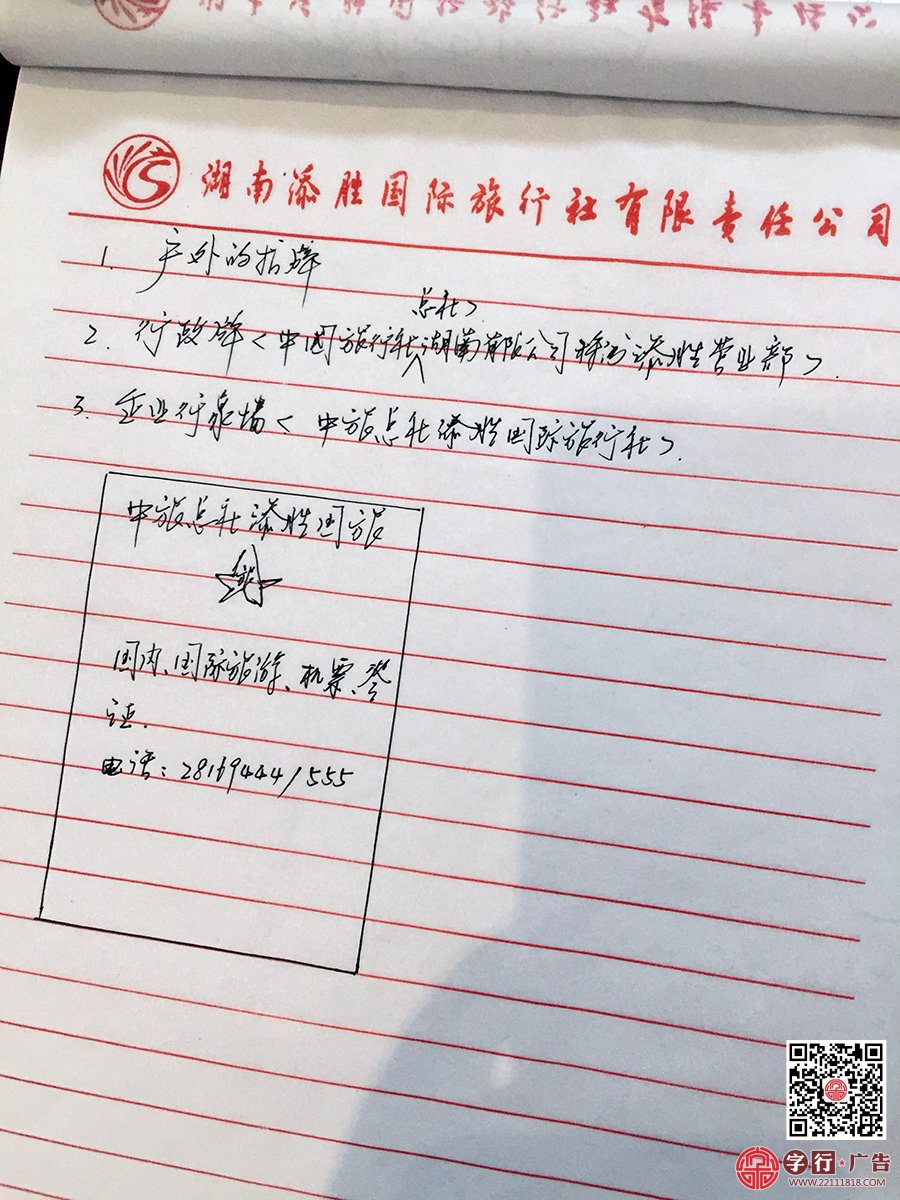 湖南添胜国际旅行社有限责任公司
1. 户外的招牌
总社
2. 行政牌<中国旅行社湖南有限公司株洲添胜营业部>.
3. 企业形象墙<中旅总社添胜国际旅行社>.
中旅总社添胜国旅
国内、国际旅游、机票、签
证.
电话: 28169444/555
字行·广告
WWW.22111818.COM